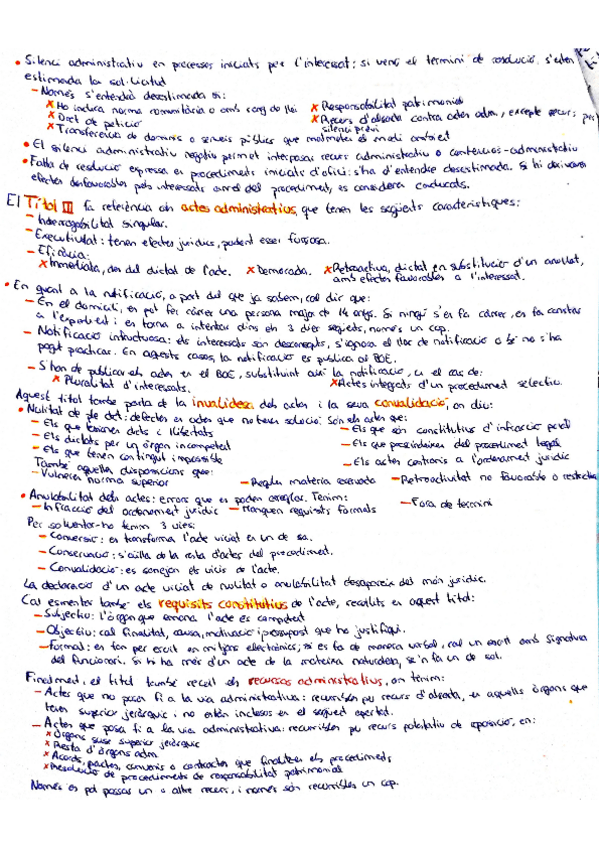 • Silenci administratiu en processos iniciats per l'interessat: si venç el termini de resolució, s'entén
estimada la sol·licitud
– Només s'entendrà desestimada si:
x Ho indica norma comunitària o amb rang de llei x Responsabilitat patrimonial
x Dret de petició x Recurs d'alçada contra actes adm, excepte recurs per
silenci previ
x Transferència de domini o serveis públics que malmeten el medi ambient
• El silenci administratiu negatiu permet interposar recurs administratiu o contenciós-administratiu
• Falta de resolució expressa en procediments iniciats d'ofici: s'ha d'entendre desestimada. Si hi
efectes desfavorables pels interessats arrel del procediment, es considera caducats.
El Títol III fa referència als actes administratius, que tenen les següents característiques:
– singular.
– Executivitat: tenen efectes jurídics, podent esser forçosa.
– Eficàcia:
x Immediata, des del dictat de l'acte. x Demorada. x Retroactiva, dictat en substitució d'un anul·lat,
amb efectes favorables a l'interessat.
• En quant a la notificació, a part del que ja sabem, cal dir que:
– En el domicili, es pot fer càrrec una persona major de 14 anys. Si ningú s'en fa càrrec, es fa constar
a l'expedient i es torna a intentar dins els 3 dies següents, només un cop.
– Notificació infructuosa: els interessats son desconeguts, s'ignora el lloc de notificació o bé no s'ha
pogut practicar. En aquests casos, la notificació es publica al BOE.
– S'han de publicar els actes en el BOE, substituint així la notificació, en el cas de:
x Pluralitat d'interessats. x Actes integrats d'un procediment selectiu.
Aquest títol també parla de la invalidesa dels actes i la seva convalidació, on diu:
• Nul·litat de ple dret: defectes en actes que no tenen solució. Són els actes que:
– Els que lesionen drets i llibertats – Els que són constitutius d'infracció penal
– Els dictats per un òrgan incompetent – Els que prescindeixen del procediment legal
– Els que tenen contingut impossible – Els actes contraris a l'ordenament jurídic
També aquelles disposicions que:
– Vulneren norma superior – Regulen matèria reservada – Retroactivitat no favorable o restrictiva
• Anulabilitat dels actes: errors que es poden arreglar. Tenim:
– Infracció del ordenament jurídic – Manquen requisits formals – Fora de termini
Per solventar-ho tenim 3 vies:
– Conversió: es transforma l'acte viciat en un de sa.
– Conservació: s'aïlla de la resta d'actes del procediment.
– Convalidació: es sanejen els vicis de l'acte.
La declaració d'un acte viciat de nul·litat o anulabilitat desapareix del món jurídic.
Cal esmentar també els requisits constitutius de l'acte, recollits en aquest títol:
– Subjectiu: l'òrgan que emana l'acte és competent
– Objectiu: cal finalitat, causa, motivació i pressupost que ho justifiqui.
– Formal: es fan per escrit en mitjans electrònics; si es fa de manera verbal, cal un escrit amb signatura
del funcionari. Si hi ha més d'un acte de la mateixa naturalesa, se'n fa un de sol.
Finalment, el títol també recull els recursos administratius, on tenim:
– Actes que no posen fi a la via administrativa: recurribles per recurs d'alçada, en aquells òrgans que
tenen superior jeràrquic i no estan inclosos en el següent apartat.
– Actes que posa fi a la via administrativa: recurribles per recurs potestatiu de reposició, en:
x Òrgans sense superior jeràrquic
x Resta d'òrgans adm.
x Acords, pactes, convenis o contractes que finalitzen els procediments
x Resolució de procediments de responsabilitat patrimonial
Només es pot passar un o altre recurs, i només són recurribles un cop.